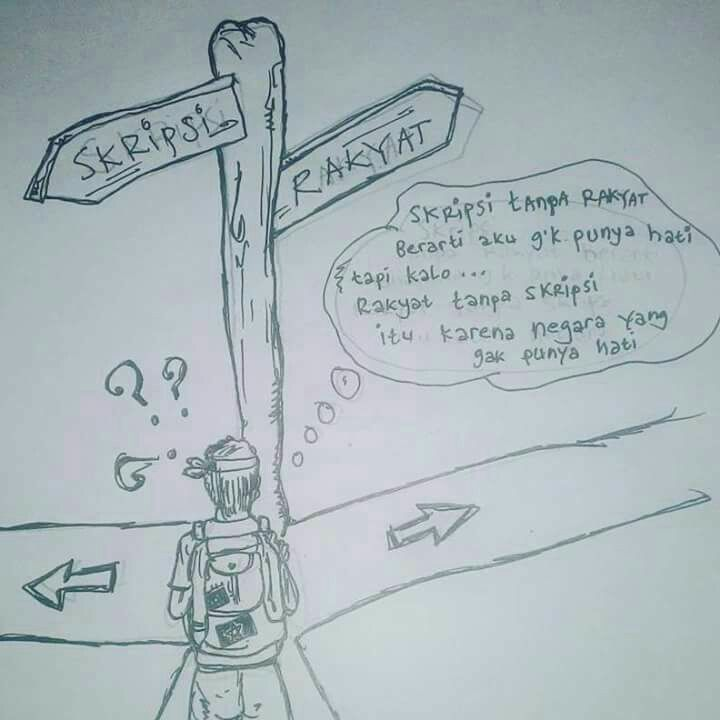 SKRiPSi
RAKYAT
SKRiPSi tANPA RAKYAT
Berarti aku g'k punya hati
tapi kalo...
Rakyat tanpa SKRipsi
itu karena negara yang
gak punya hati
? ? ?